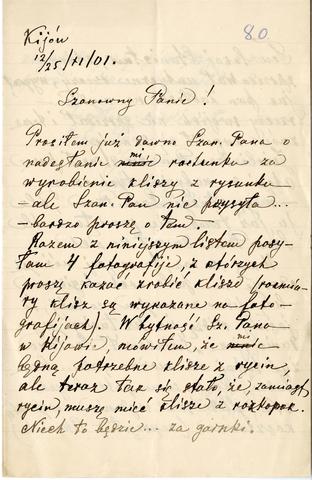 80
Kijów
12/25/XI/01.
Szanowny Panie!
Prosiłem już dawno Szan. Pana o
nadesłanie mi rachunku za
wyrobienie kliszy z rysunku
– ale Szan. Pan nie przysyła...
– bardzo proszę o to
Razem z niniejszym listem posy-
łam 4 fotografije, z których
proszę kazać zrobić klisze (rozmia-
ry klisz są wykazane na foto-
grafijach). W bytność Sz. Pana
w Kijowie, mówiłem, że mi
będą potrzebne klisze z rycin,
ale teraz tak się stało, że, zamiast
rycin, muszę mieć klisze z rozkopok.
Niech to będzie... za garnki.